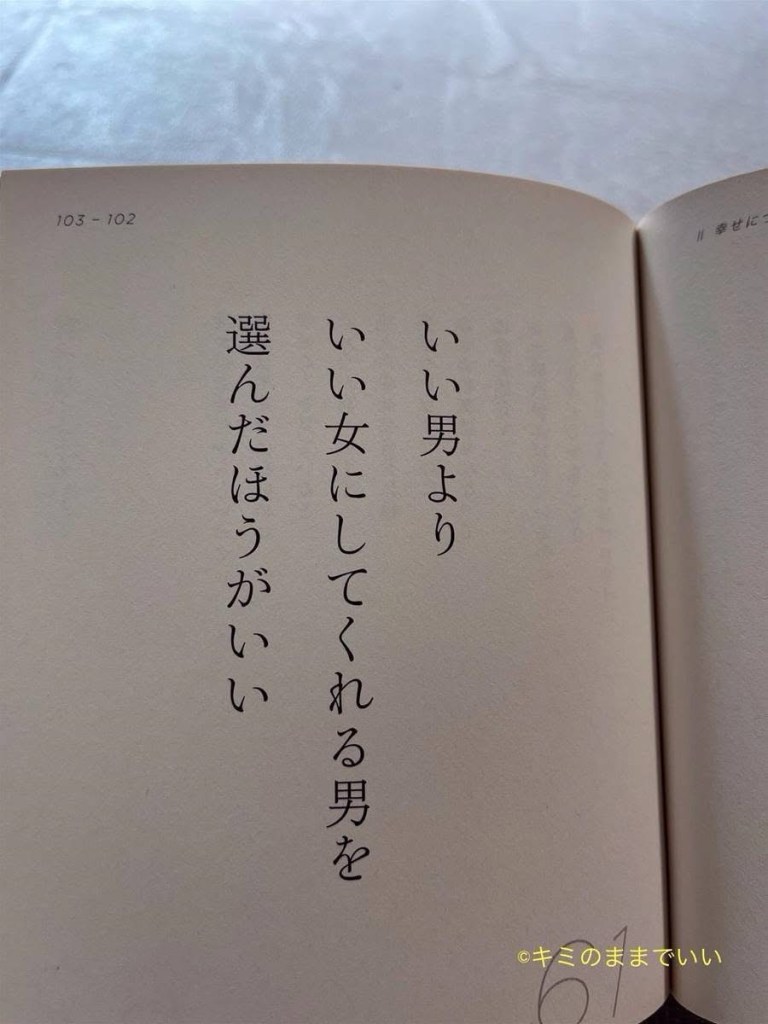 103 – 102
いい男より
いい女にしてくれる男を
選んだほうがいい
61
©キミのままでいい
II 幸せに